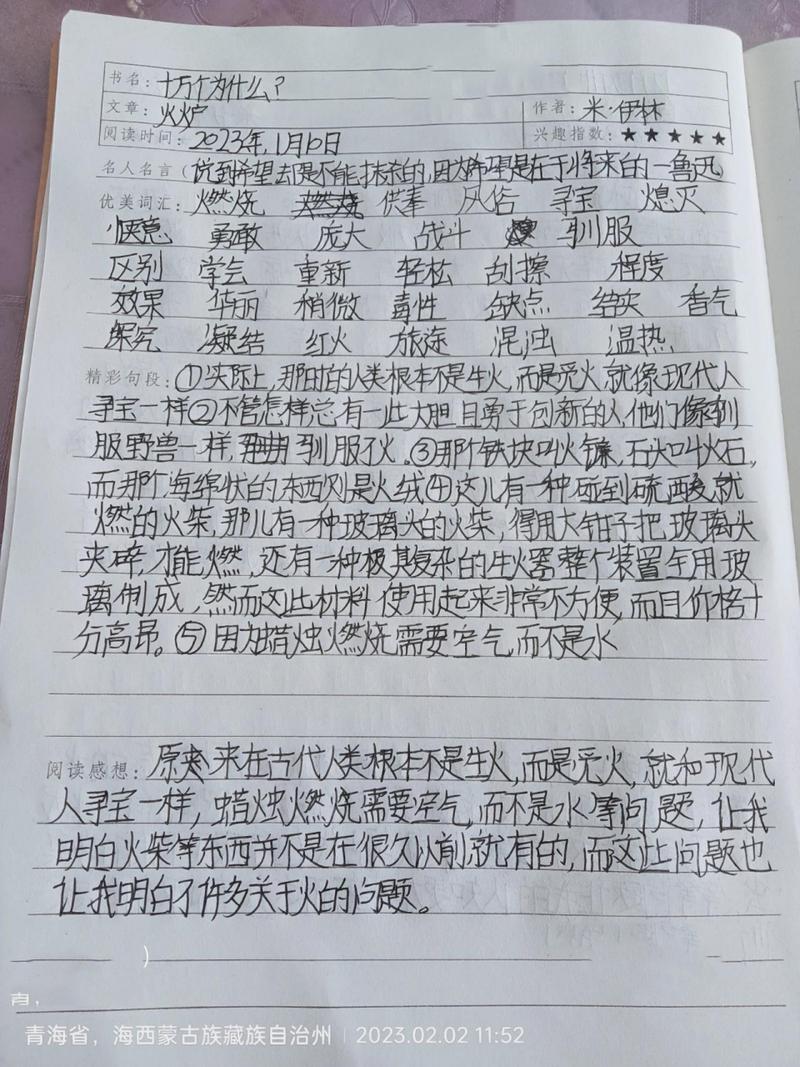 书名：十万个为什么？
文章：火炉 作者：米·伊林
阅读时间：2023年1月10日 兴趣指数：★★★★★
名人名言（说到希望却是不能抹杀的，因为希望是在于将来的—鲁迅
优美词汇：燃烧 供奉 风俗 寻宝 熄灭
惬意 勇敢 庞大 战斗 驯服
区别 学会 重新 轻松 刮擦 程度
效果 华丽 稍微 毒性 缺点 结实 香气
探究 凝结 红火 旅途 混浊 温热
精彩句段：①实际上，那时的人类根本不是生火，而是觅火，就像现代人
寻宝一样②不管怎样总有一些大胆且勇于创新的人，他们像驯
服野兽一样，驯服了火。③那个铁块叫火镰，石头叫火石，
而那个海绵状的东西则是火绒④这儿有一种碰到硫酸就
燃的火柴，那儿有一种玻璃头的火柴，得用大钳子把玻璃头
夹碎，才能燃，还有一种极其复杂的生火器整个装置全用玻
璃制成，然而这些材料使用起来非常不方便，而且价格十
分高昂。⑤因为蜡烛燃烧需要空气，而不是水
阅读感想：原来在古代人类根本不是生火，而是觅火，就和现代
人寻宝一样，蜡烛燃烧需要空气，而不是水等问题，让我
明白火柴等东西并不是在很久以前就有的，而这些问题也
让我明白了许多关于火的问题。
青海省，海西蒙古族藏族自治州 | 2023.02.02 11:52